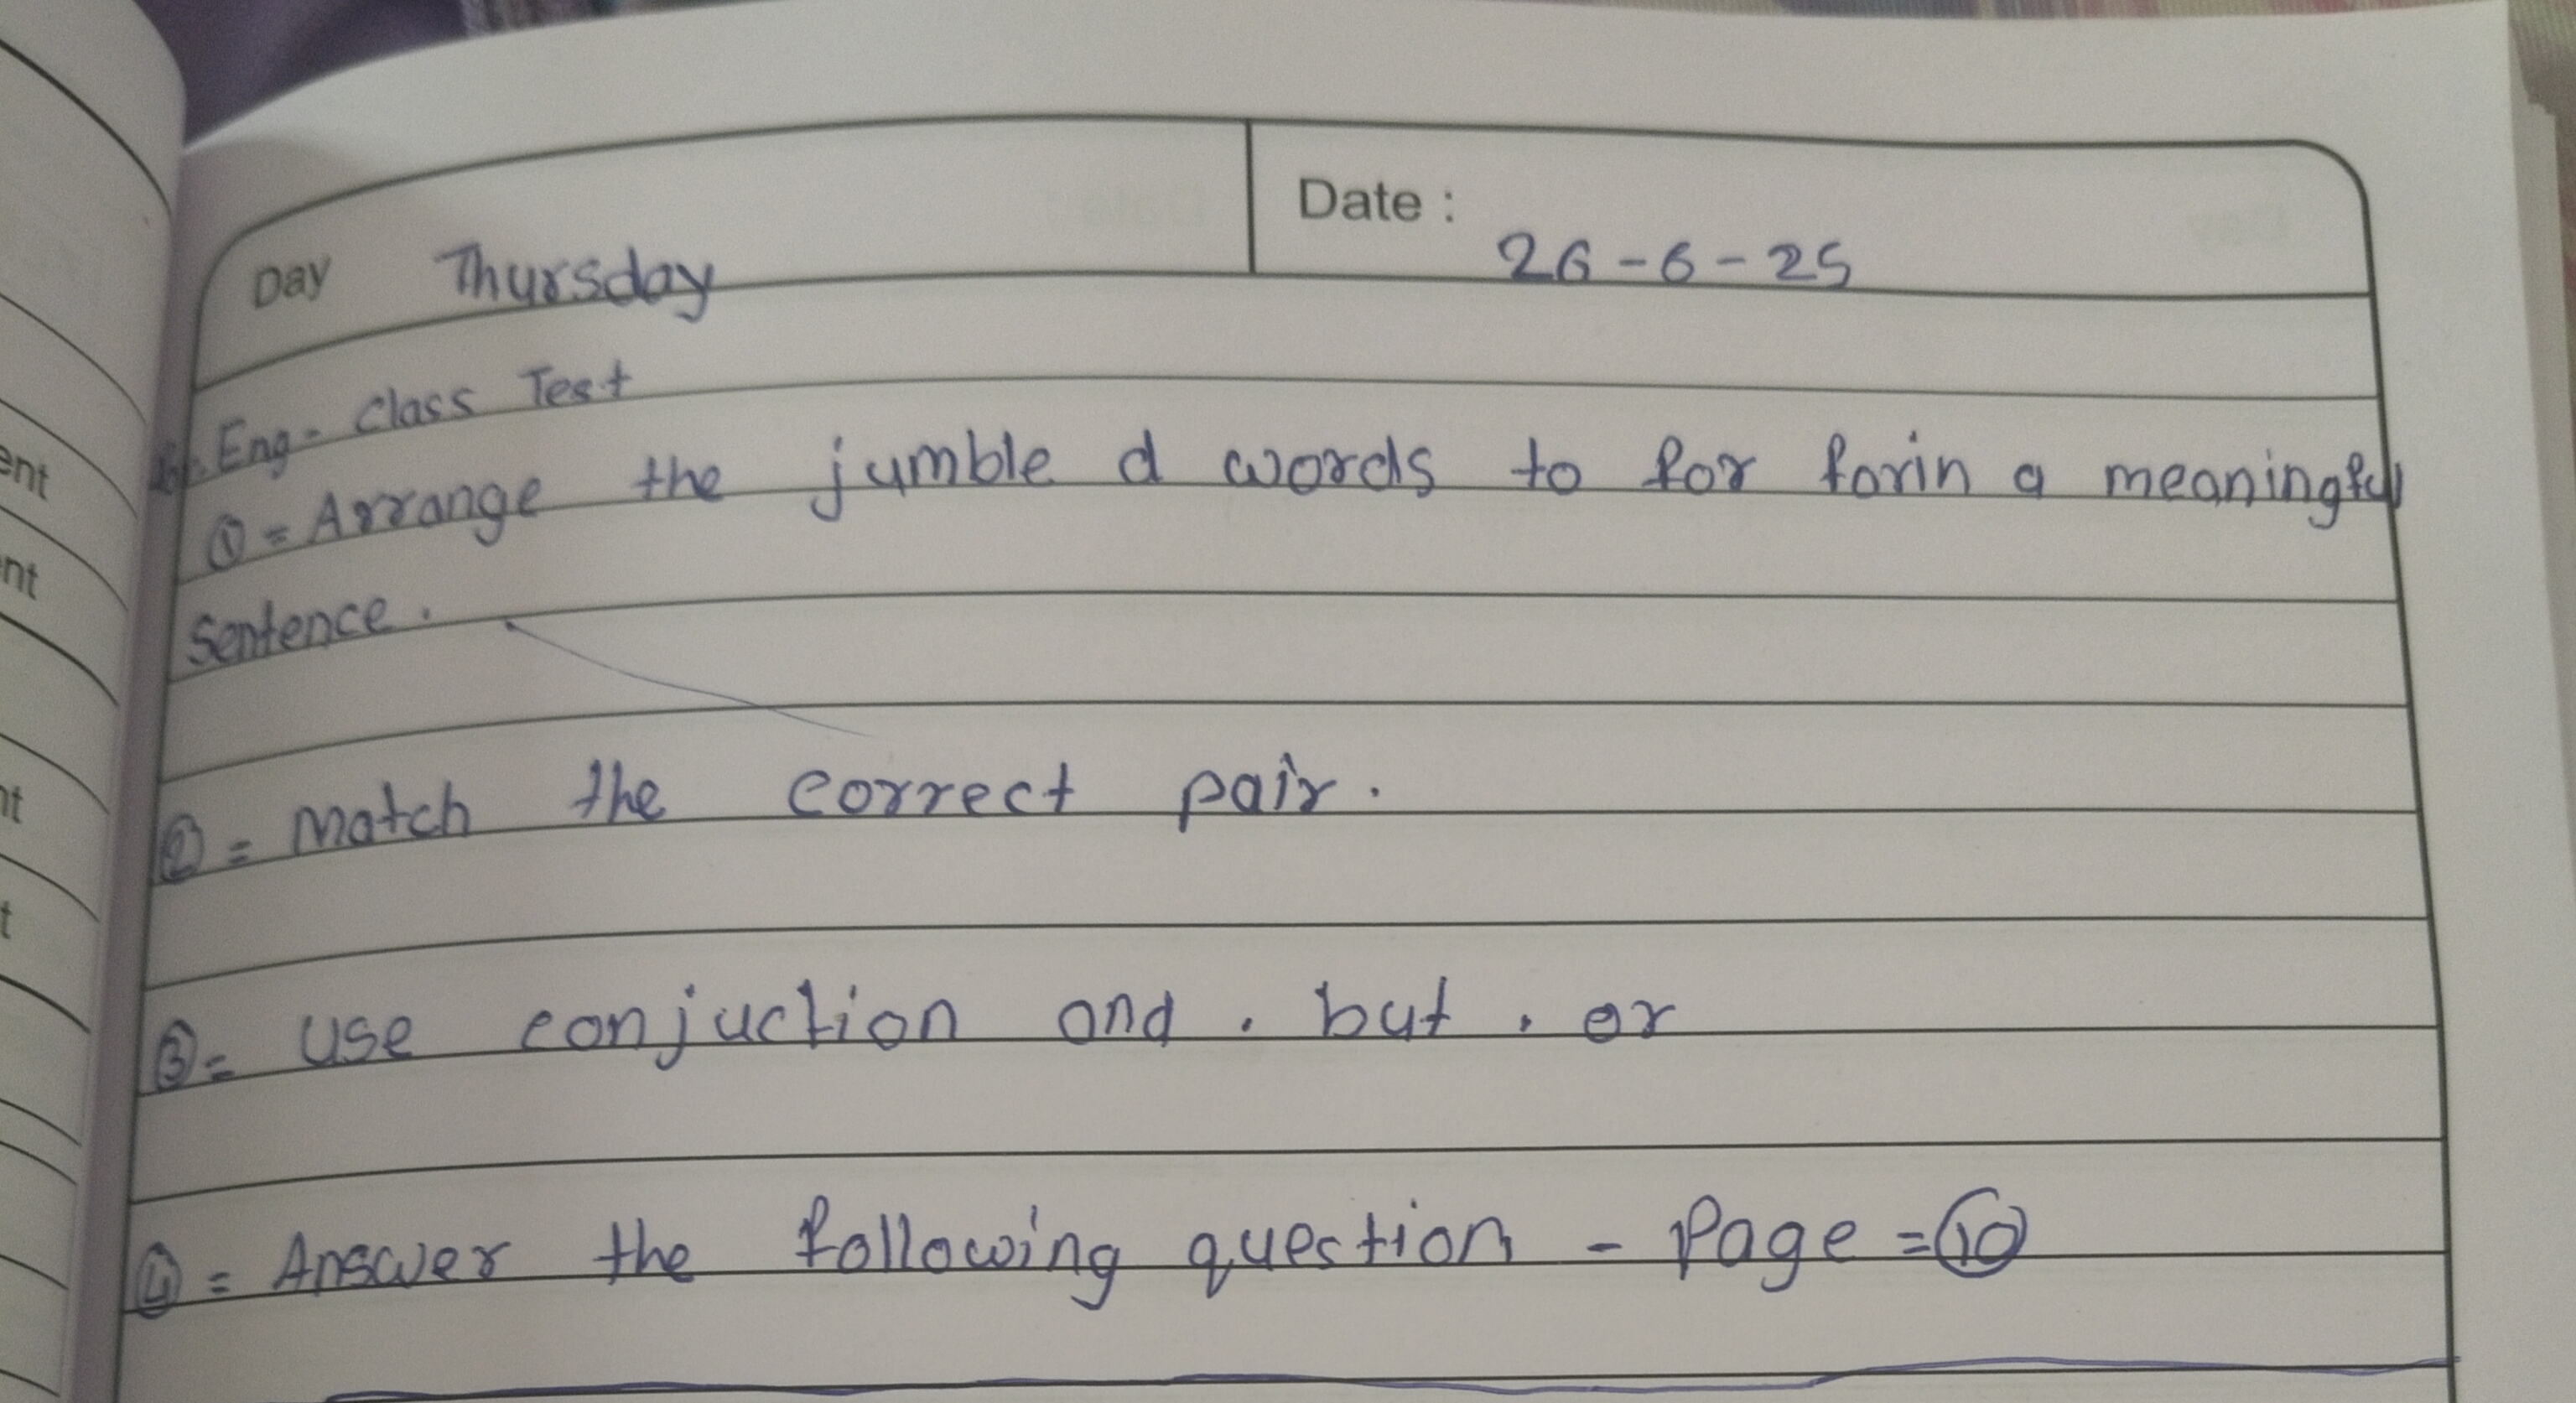 Day Thursday Date : 26-6-25
Eng- Class Test
① = Arrange the jumble d words to for forin a meaningful
Sentence.
② = Match the correct pair.
③ = use conjuction and . but . or
④ = Answer the following question - Page = ⑩
ent
nt
nt
t